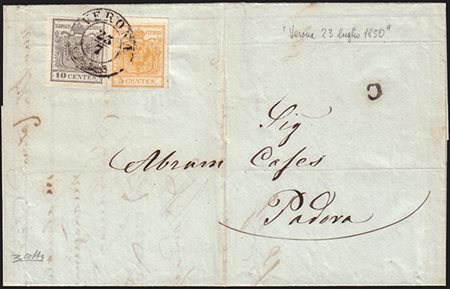 "Verona 23 luglio 1850"
VERONA
23
7
10 CENTES.
5 CENTES
Sig
Abram Cases
Padova